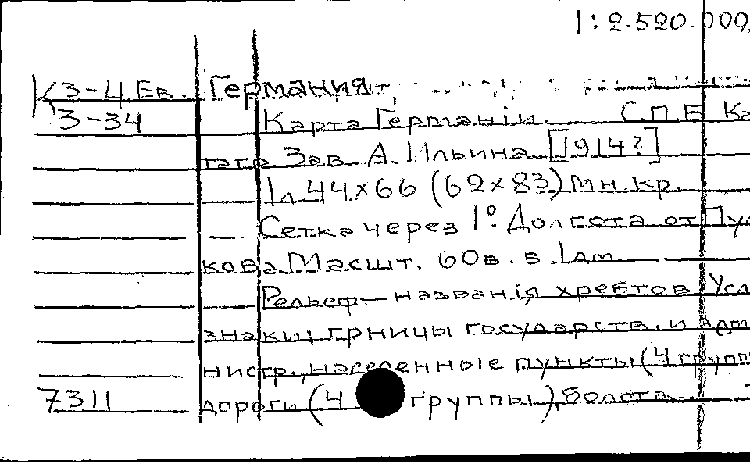 1:2.520.000
К3-4 Ев. Германия
3-34 Карта Германіи. С.П.Б. Ка
тогр Зав. А. Ильина [1914?]
1 л 44×66 (62×83) мн. кр.
Сетка через 1°. Долгота от Пул
кова. Масшт. 60 в. в 1 дм
Рельеф — названія хребтов Усл
знаки: грницы государств. и адм
нистр., населенные пункты (4 групп
7311 дороги (4 группы), болота